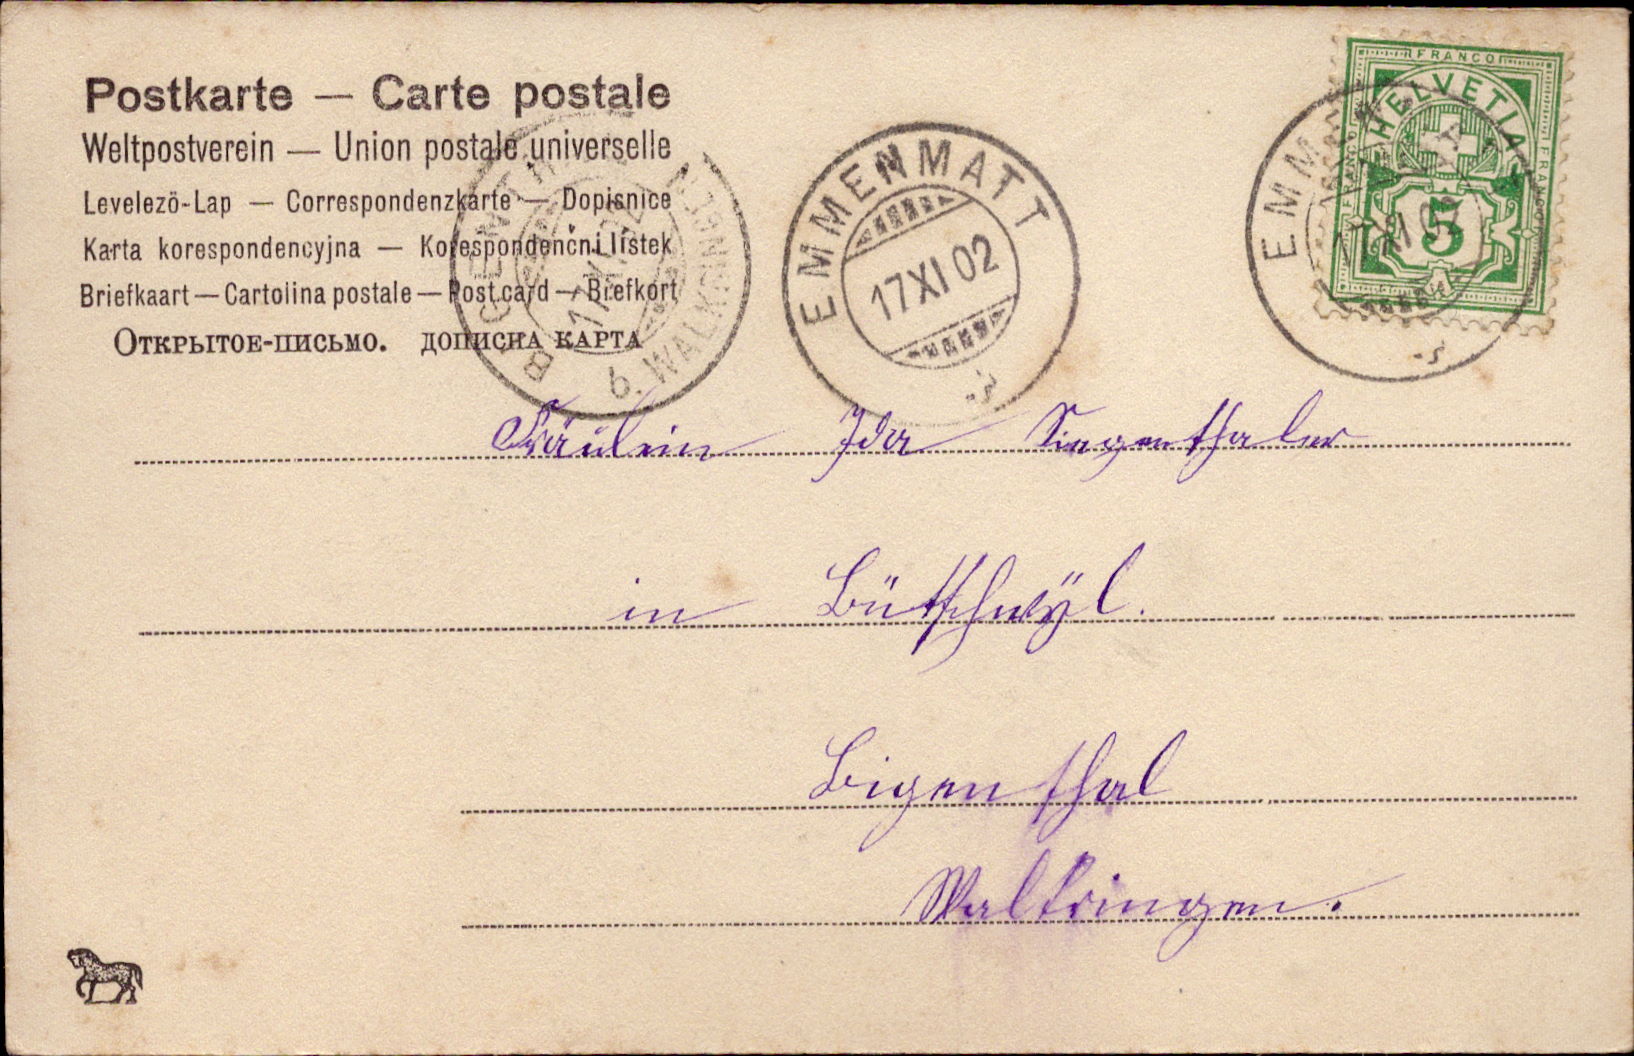 Postkarte — Carte postale
Weltpostverein — Union postale universelle
Levelezö-Lap — Correspondenzkarte — Dopisnice
Karta korespondencyjna — Korespondenčni listek
Briefkaart — Cartolina postale — Post card — Brefkort
Открытое-письмо. дописна карта
BIGENTHAL
17 XI 02
b. WALKRINGEN
EMMENMATT
17 XI 02
EMM
17 XI 02
FRANCO
HELVETIA
FRANCO
FRANCO
5
Fräulein Ida Siegenthaler
in Büttschwÿl.
Bigenthal
Walkringen.